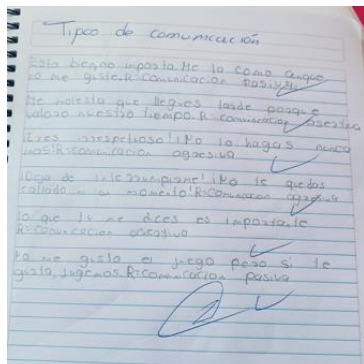 Tipco de comunicación
Esta bn no importa. Me la como aunque
no me guste. R: comunicación Pasiva
Me molesta que llegues tarde porque
valoro nuestro tiempo. R: comunicación asertiva
¡Eres irrespetuoso! ¡No lo hagas nunca
mas! R: comunicación agresiva
¡Deja de interrumpirme! ¡No te quedas
callado ni un momento! R: comunicacion agresiva
lo que tu me dices es importante
R: comunicacion asertiva
No me gusta el juego pero si te
gusta, jugemos. R: comunicacion pasiva